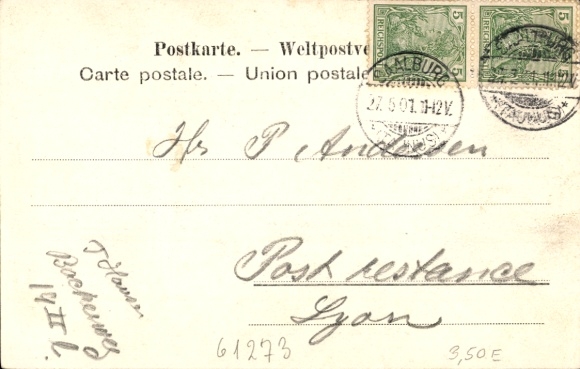 Postkarte. — Weltpostve
Carte postale. — Union postale
5 REICHSPOST
5 REICHSPOST
SAALBURG
27.6.01. 11-12V.
SAALBURG
11-12V.
(TAUNUS)
Hr P Andersen
Post restance
Lyon
T Hansen
19 II l.
61273
3,50 E